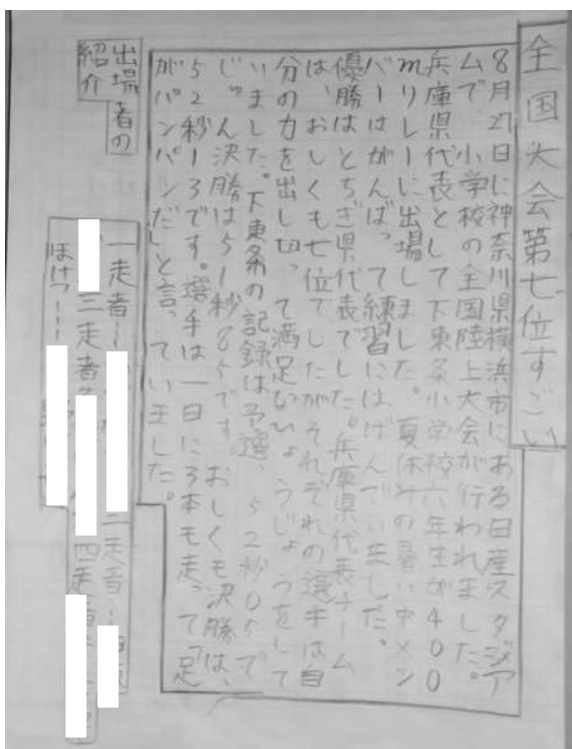 全国大会第七位すごい
8月27日に神奈川県横浜市にある日産スタジア
ムで、小学校の全国陸上大会が行われました。
兵庫県代表として下東条小学校六年生が400
mリレーに出場しました。夏休みの暑い中メン
バーはがんばって練習にはげんでいました。
優勝はとちぎ県代表でした。兵庫県代表チーム
は、おしくも七位でしたがそれぞれの選手は自
分の力を出し切って満足なひょうじょうをして
いました。下東条の記録は予選、52秒05で
じゅん決勝は51秒85です。おしくも決勝は、
52秒13です。選手は一日に3本も走って「足
がパンパンだ」と言っていました。
出場者の
紹介
一走者ー
二走者ー
三走者
四走者
ほけつー